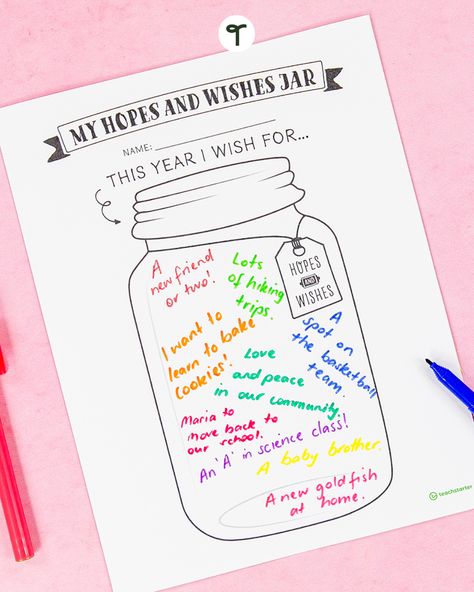 MY HOPES AND WISHES JAR
NAME:
THIS YEAR I WISH FOR...
HOPES
AND
WISHES
A
new friend
or two!
Lots
of hiking
trips.
I want to
learn to bake
cookies!
A
spot on
the basketball
team.
Love
and peace
in our community.
Maria to
move back to
our school.
An 'A' in science class!
A baby brother.
A new goldfish
at home.
teachstarter